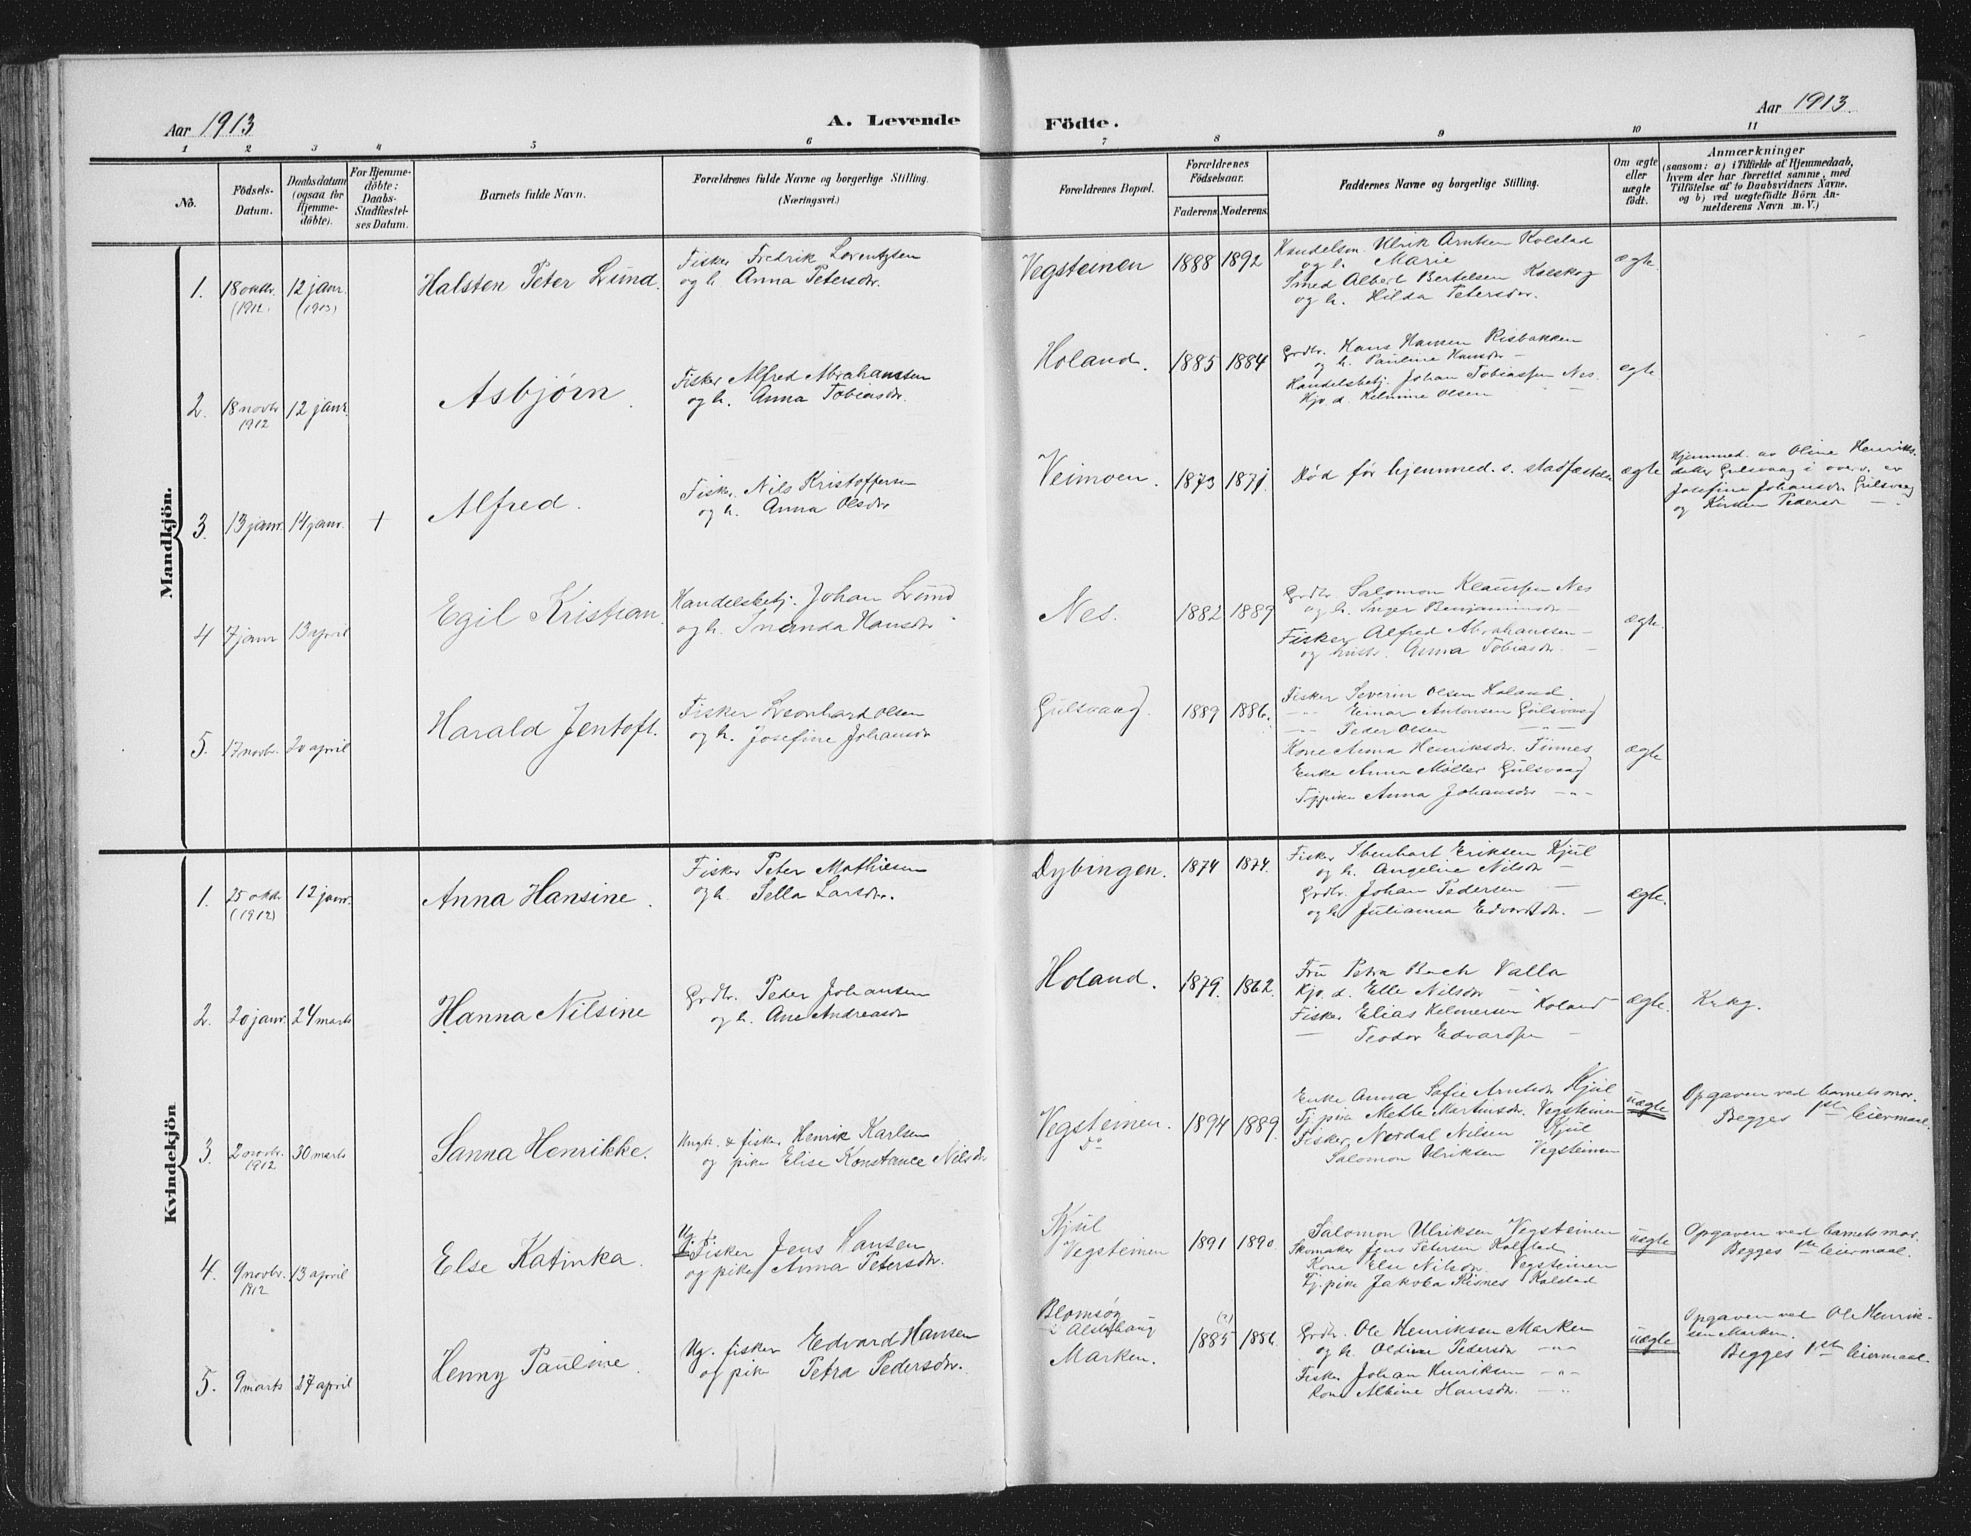 Aar 1913
A. Levende
Födte.
Aar 1913
1 2 3 4 5 6 7 8 9 10 11
No.
Födsels-
Datum.
Daabsdatum
(ogsaa for
Hjemme-
döbte).
For Hjemme-
döbte:
Daabs-
Stadfæstel-
ses Datum.
Barnets fulde Navn.
Forældrenes fulde Navne og borgerlige Stilling.
(Næringsvei.)
Forældrenes Bopæl.
Forældrenes
Födselsaar.
Faderens Moderens.
Faddernes Navne og borgerlige Stilling.
Om ægte
eller
uægte
födt.
Anmærkninger
(saasom: a) i Tilfælde af Hjemmedaab,
hvem der har forrettet samme, med
Tilföielse af to Daabsvidners Navne,
og b) ved uægtefödte Börn An-
melderens Navn m. V.)
Mandkjön.
1. 18 oktbr. (1912) 12 janr. (1913)
Halsten Peter Lund.
Fisker Fredrik Lorentzen
og h. Anna Petersdr.
Vegsteinen 1888 1892
Handelsm. Ulrik Arntsen Kolstad
og h. Marie
Smed Albert Bertelsen Kolskog
og h. Hilda Petersdr.
ægte.
2. 18 novbr 1912 12 janr.
Asbjørn.
Fisker Alfred Abrahamsen
og h. Anna Tobiasdr.
Holand. 1885 1884
Grdbr. Hans Hansen Risbakken
og h. Pauline Hansdr. —
Handelsbetj. Johan Tobiassen Nes.
Kjø. d. Helmine Olsen
ægte
3. 13 janr. 14 janr. +
Alfred.
Fisker Nils Kristoffersen
og h. Anna Olsdr
Veimoen. 1873 1871.
Død før hjemmed. s. stadfæstelse
ægte
Hjemmed. av Oline Henriks-
datter Gulsvaag i overv. av
Josefine Johansdr. Gulsvaag
og Kirsten Pedersdr —
4 7 janr 13 april
Egil Kristian.
Handelsbetj. Johan Lund
og h. Inanda Hansdr.
Nes. 1882 1889
Grdbr. Salomon Klaussen Nes
og h. Inger Benjaminsdr —
Fisker Alfred Abrahamsen —
og hustr. Anna Tobiasdr. —
ægte.
5. 17 novbr. 20 april
Harald Jentoft.
Fisker Leonhard Olsen
og h. Josefine Johansdr
Gulsvaag. 1889 1886.
Fisker Severin Olsen Holand.
-"- Einar Antonsen Gulsvaag
-"- Peder Olsen
Kone Anna Henriksdr. Finnes
Enke Anna Møller Gulsvaag
Tjpike Anna Johansdr -"-
ægte
Kvindekjön
1. 25 oktbr (1912) 12 janr.
Anna Hansine.
Fisker Peter Mathisen
og h. Sella Larsdr.
Dybingen. 1874 1874.
Fisker Ebenhart Eriksen Kjul
og h. Angeline Nilsdr —
Grdbr. Johan Pedersen —
og h. Julianna Edvardsdr. —
ægte.
2. 20 janr. 24 marts
Hanna Nilsine
Grdbr. Peder Johansen
og h. Ane Andreasdr
Holand. 1879. 1862.
Fru Petra Bach Valla
Kjø. d. Elle Nilsdr —
Fisker Elias Helmersen Holand
— Teodor Edvardsen —
ægte.
Krkg.
3. 2 novbr. 1912 30 marts
Sanna Henrikke.
Ungk. & fisker Henrik Karlsen
og pike Elise Konstance Nilsdr
Vegsteinen. 1894 1889.
Do
Enke Anna Sofie Arntsdr Kjul
Tj. pike Mette Martinsdr. Vegsteinen
Fisker Nordal Nilsen Kjul
Salomon Ulriksen Vegsteinen
uægte
Opgaven ved barnets mor.
Begges 1ste leiermaal.
4. 9 novbr. 1912 13 april
Else Katinka.
Ug. f.
Fisker Jens Hansen
og pike Anna Petersdr.
Kjul
Vegsteinen 1891 1890
Salomon Ulriksen Vegsteinen
Skomaker Jens Petersen Kolstad
Kone Else Nilsdr. Vegsteinen
Tj. pike Jakoba Risnes Kolstad
uægte
Opgaven ved barnets mor.
Begges 1ste leiermaal.
5. 9 marts 27 april
Henny Pauline.
Ug. fisker Edvard Hansen
og pike Petra Pedersdr.
Blomsøy
i Alstahaug
Marken. (?) 1885 1886
Grdbr. Ole Henriksen Marken
og h. Oldine Pedersdr -"-
Fisker Johan Henriksen -"-
Kone Albine Hansdr. -"-
uægte
Opgaven ved Ole Henrik-
sen Marken.
Begges 1ste leiermaal.